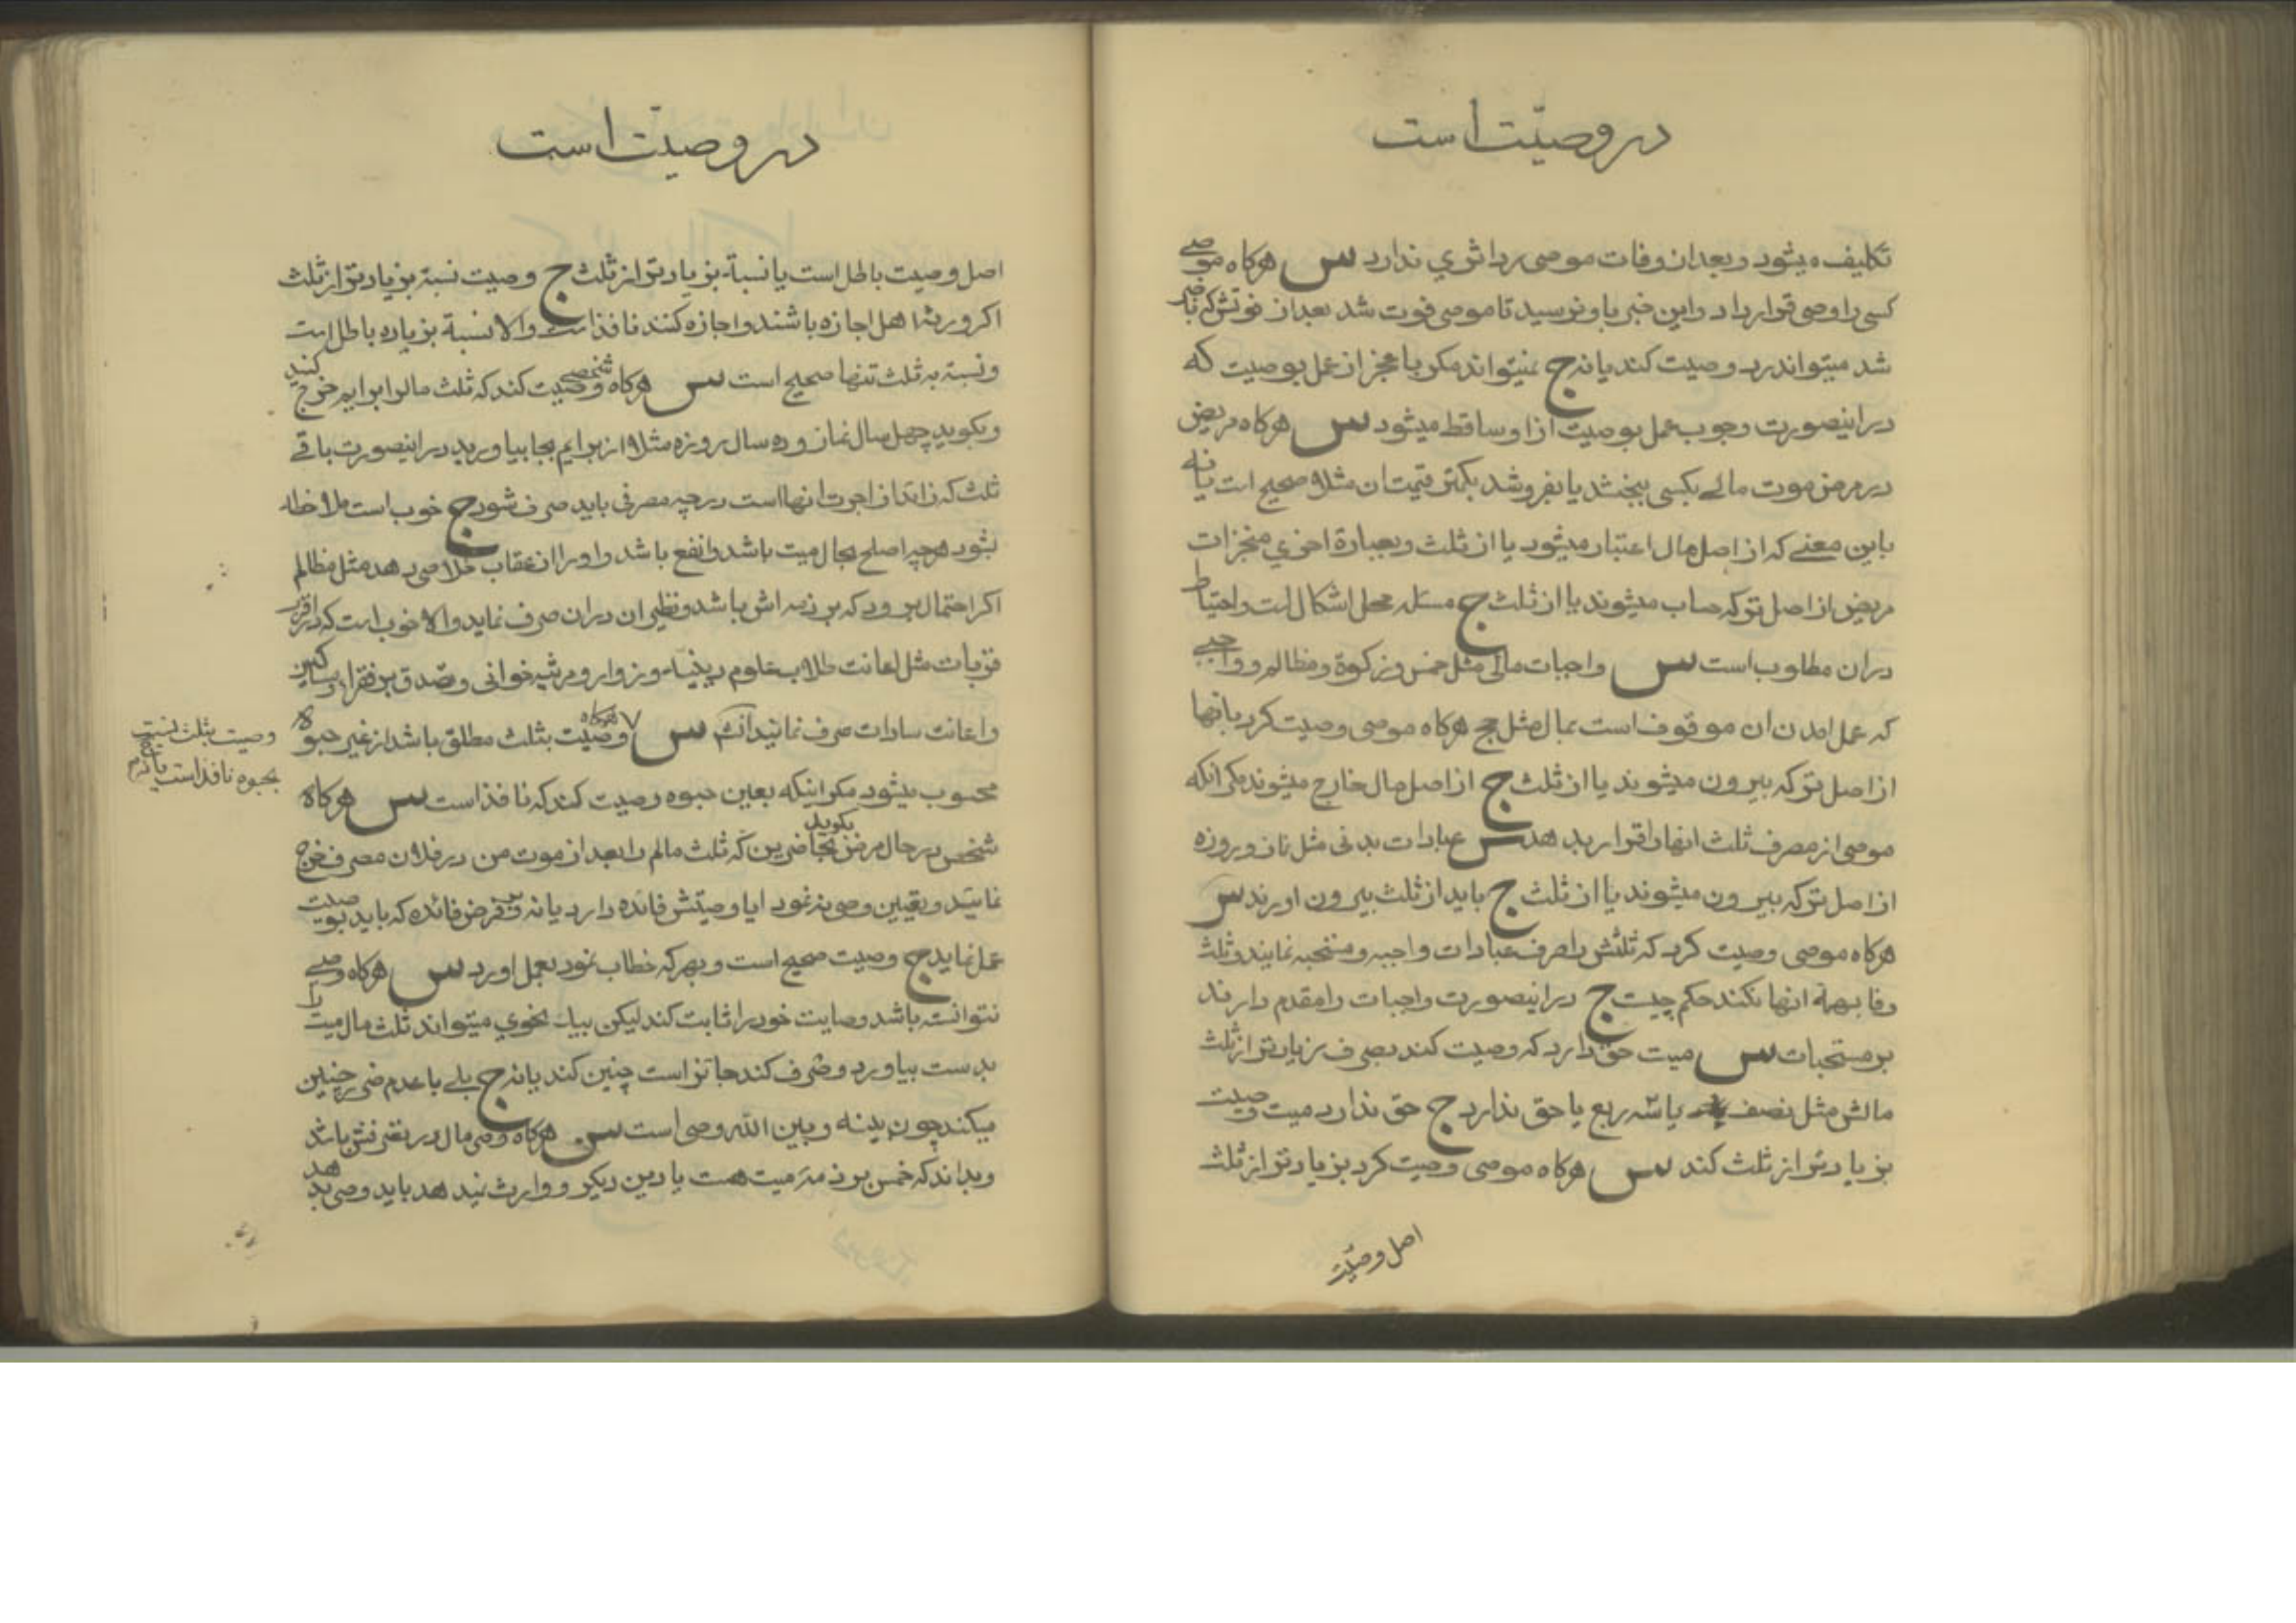 در وصیّت است
تکلیف میشود و بعد از وفات موصی رد اثری ندارد س هرکاه موصی
کسی را وصی قرار داد و این خبر باو نرسید تا موصی فوت شد بعد از فوتش که باخبر
شد میتواند رد وصیت کند یا نه ج نمیتواند مکر با عجز از عمل بوصیت که
در اینصورت وجوب عمل بوصیت از او ساقط میشود س هرکاه مریض
در مرض موت مالی بکسی ببخشد یا بفروشد بکمتر قیمت ان مثلا صحیح است یا نه
باین معنی که از اصل مال اعتبار میشود یا از ثلث و بعبارة اخری منجزات
مریض از اصل ترکه حساب میشوند یا از ثلث ج مسئله محل اشکال است و احتیاط
در ان مطلوب است س واجبات مالی مثل خمس و زکوة و مظالم و واجبی
که عمل امدن ان موقوف است بمال مثل حج هرکاه موصی وصیت کرد بانها
از اصل ترکه بیرون میشوند یا از ثلث ج از اصل مال خارج میشوند مکر انکه
موصی از مصرف ثلث انها را قرار بدهد س عبادات بدنی مثل نماز و روزه
از اصل ترکه بیرون میشوند یا از ثلث ج باید از ثلث بیرون اورند س
هرکاه موصی وصیت کرد که ثلثش را صرف عبادات واجبه و مستحبه نمایند و ثلث
وفا بهمهٔ انها نکند حکم چیست ج در اینصورت واجبات را مقدم دارند
بر مستحبات س میت حق دارد که وصیت کند بصرف زیادتر از ثلث
مالش مثل نصف یا سه ربع یا حق ندارد ج حق ندارد میت وصیت
بزیادتر از ثلث کند س هرکاه موصی وصیت کرد بزیادتر از ثلث
اصل وصیّت
در وصیّت است
اصل وصیت باطل است یا نسبة بزیادتر از ثلث ج وصیت نسبة بزیادتر از ثلث
اکر ورثه اهل اجازه باشند و اجازه کنند نافذ است و الا نسبة بزیاده باطل است
و نسبة به ثلث تنها صحیح است س هرکاه شخصی وصیت کند که ثلث مالرا برایم خرج کنید
و بکوید چهل سال نماز و ده سال روزه مثلا از برایم بجا بیاورید در اینصورت باقی
ثلث که زائد از اجرت انها است در چه مصرفی باید صرف شود ج خوب است ملاحظه
بشود هرچه اصلح بحال میت باشد و انفع باشد و او را از عقاب خلاصی دهد مثل مظالم
اکر احتمال برود که بر ذمه اش باشد و نظیر ان در ان صرف نماید و الا خوب است که در اقرب
قربات مثل اعانت طلاب علوم دینیه و زوار و مرثیه خوانی و تصدق بر فقراء و مساکین
و اعانت سادات صرف نمایند س هرکاه وصیت بثلث مطلق باشد از غیر حبوه
وصیت بثلث نسبت
بحبوه نافذ است یا نه ج
محسوب میشود مکر اینکه بعین حبوه وصیت کند که نافذ است س هرکاه
شخص در حال مرض بحاضرین بکوید که ثلث مالم را بعد از موت من در فلان مصرف خرج
نمائید و تعیین وصی ننمود ایا وصیتش فائده دارد یا نه و بر فرض فائده که باید بوصیت
عمل نماید ج وصیت صحیح است و بهر که خطاب نمود بعمل اورد س هرکاه وصی
نتوانسته باشد وصایت خود را ثابت کند لیکن بیك نحوی میتواند ثلث مال میت را
بدست بیاورد و صرف کند جائز است چنین کند یا نه ج بلی با عدم ضرر چنین
میکند چون بینه و بین الله وصی است س هرکاه وصی مال در تصرفش باشد
و بداند که خمس بر ذمهٔ میت هست یا دین دیکر و وارث نمیدهد باید وصی بدهد